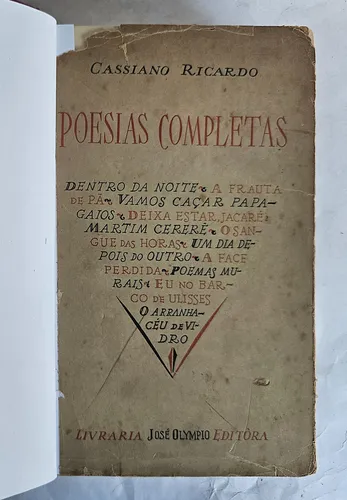 CASSIANO RICARDO
POESIAS COMPLETAS
DENTRO DA NOITE ~ A FRAUTA
DE PÃ ~ VAMOS CAÇAR PAPA-
GAIOS ~ DEIXA ESTAR, JACARÉ ~
MARTIM CERERÊ ~ O SAN-
GUE DAS HORAS ~ UM DIA DE-
POIS DO OUTRO ~ A FACE
PERDIDA ~ POEMAS MU-
RAIS ~ EU NO BAR-
CO DE ULISSES
O ARRANHA-
CÉU DE VI-
DRO
LIVRARIA JOSÉ OLYMPIO EDITÔRA